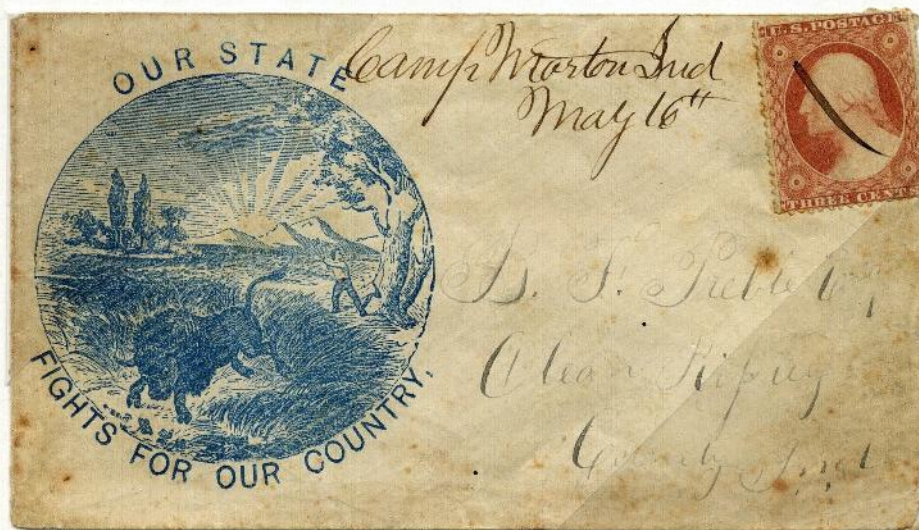 OUR STATE
FIGHTS FOR OUR COUNTRY.
Camp Morton Ind
May 16th
U.S. POSTAGE
THREE CENTS
B. F. Preble Esq
Olean Ripley
County Ind